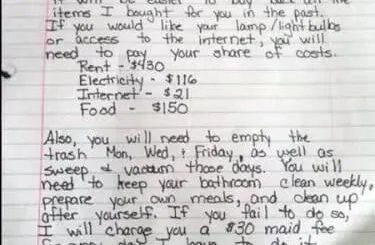 it will be easier to buy back all the
items I bought for you in the past.
If you would like your lamp/light bulbs
or access to the internet, you will
need to pay your share of costs.
Rent - $430
Electricity - $116
Internet - $21
Food - $150
Also, you will need to empty the
trash Mon, Wed, + Friday, as well as
sweep + vaccum those days. You will
need to keep your bathroom clean weekly,
prepare your own meals, and clean up
after yourself. If you fail to do so,
I will charge you a $30 maid fee
for any day I have to do it.